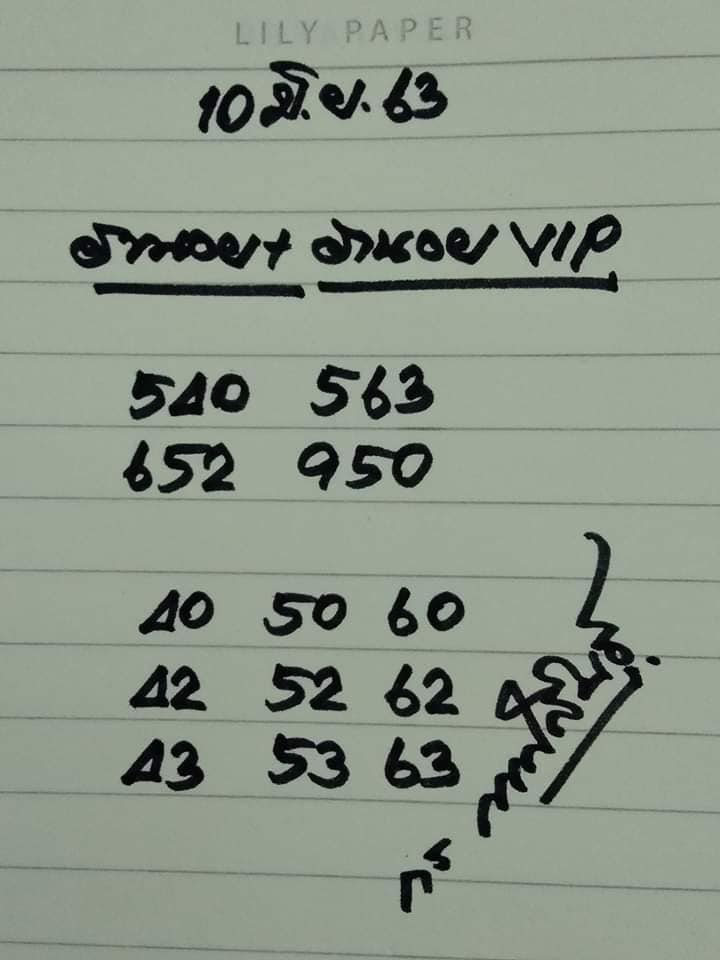 LILY PAPER
10 มิ.ย. 63
ฮานอย + ฮานอย VIP
540 563
652 950
40 50 60
42 52 62
43 53 63